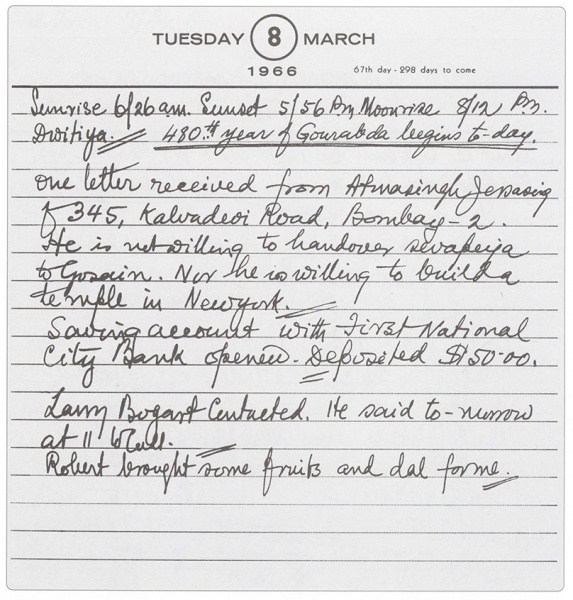 TUESDAY 8 MARCH
1966
67th day - 298 days to come
Sunrise 6/26 am. Sunset 5/56 Pm. Moonrise 8/12 Pm.
Dwitiya. 480th year of Gourabda begins to-day.
One letter received from Atmasingh Jessasing
of 345, Kalvadevi Road, Bombay-2.
He is not willing to handover
to Gosain. Nor he is willing to build a
temple in Newyork.
Saving account with First National
City Bank opened. Deposited $150.00.
Larry Bogart Contacted. He said to-morrow
at 11 O'Clock.
Robert brought some fruits and dal for me.